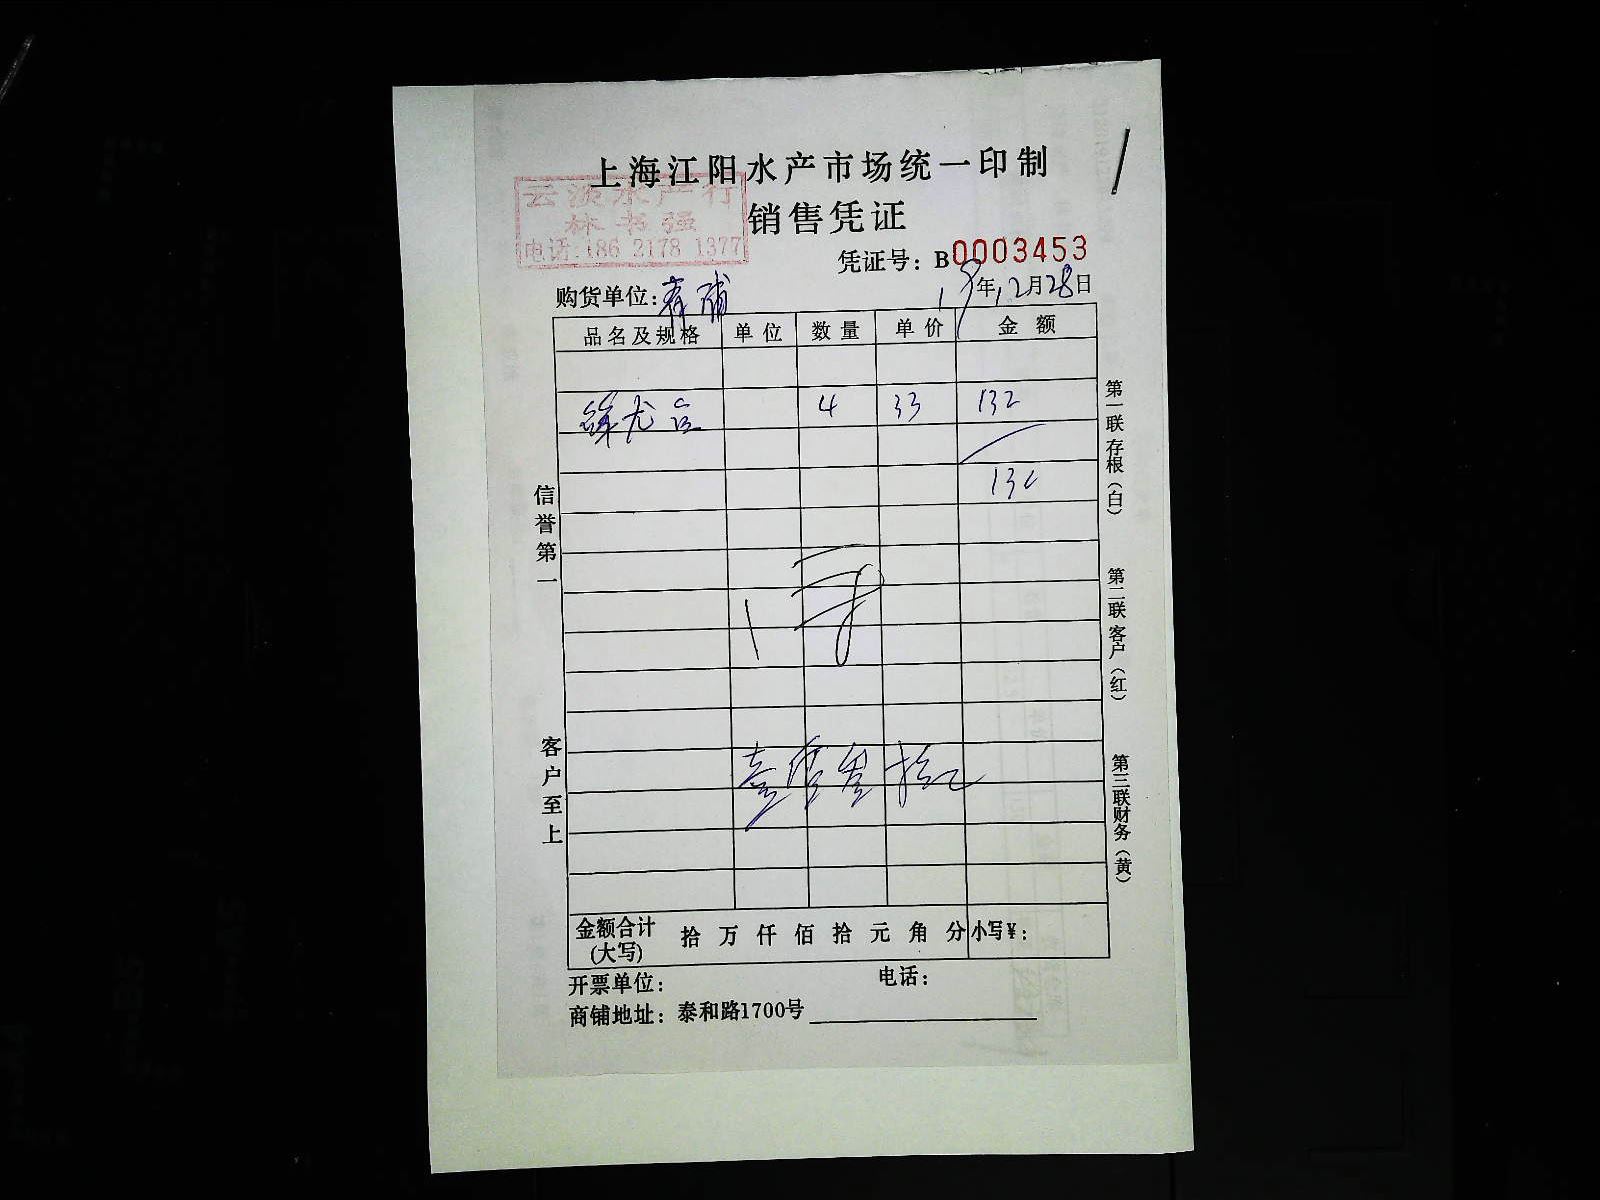 上海江阳水产市场统一印制
云淡水产行
林书强
电话:186 2178 1377
销售凭证
凭证号：B0003453
购货单位：青浦 19年12月28日
品名及规格 单位 数量 单价 金额
4 33 132
130
壹佰叁拾元
信誉第一
客户至上
第一联存根（白）
第二联客户（红）
第三联财务（黄）
金额合计(大写) 拾 万 仟 佰 拾 元 角 分 小写¥：
开票单位： 电话：
商铺地址：泰和路1700号